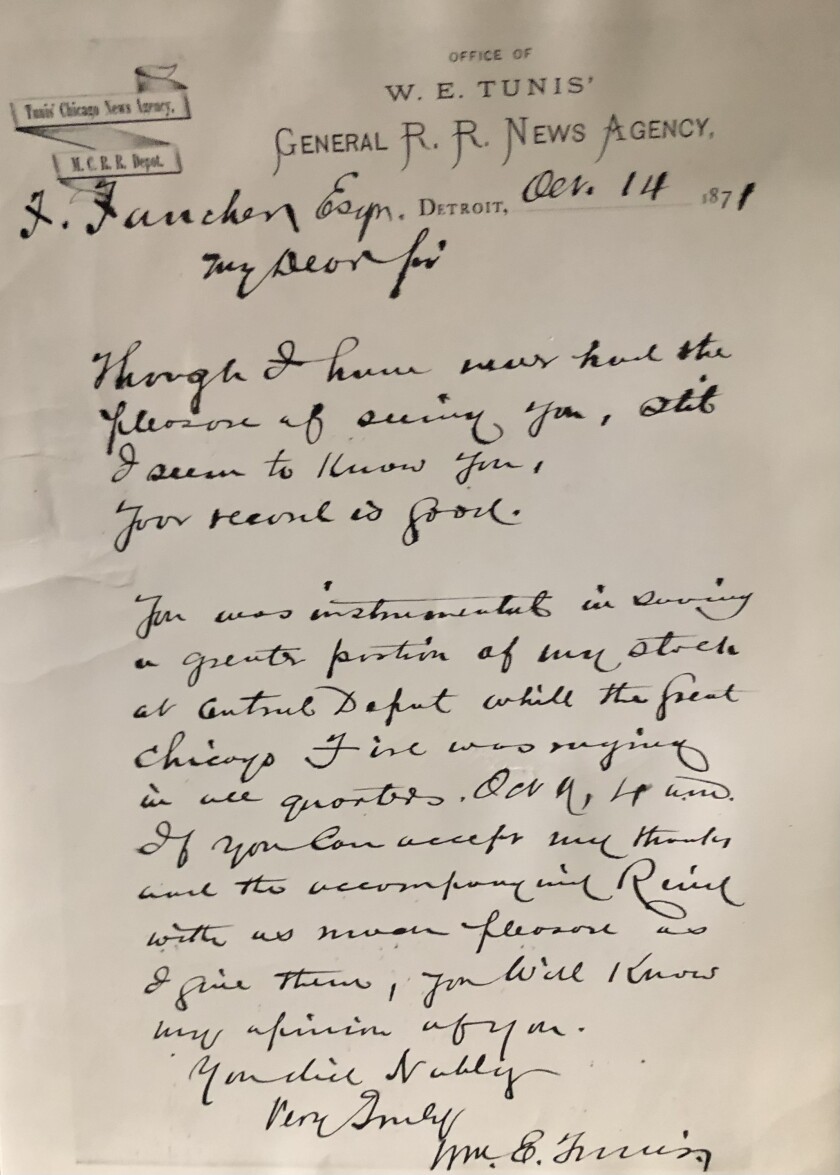 OFFICE OF
W. E. TUNIS'
GENERAL R. R. NEWS AGENCY,
Tunis' Chicago News Agency,
M. C. R. R. Depot.
F. Fancher Esqr. DETROIT, Oct. 14 1871
My Dear Sir
Though I have never had the
pleasure of seeing you, still
I seem to Know you,
Your record is good.
You was instrumental in saving
a greater portion of my stock
at Central Depot while the great
Chicago Fire was raging
in all quarters. Oct 9, 4 a.m.
If you Can accept my thanks
and the accompanying
with as much pleasure as
I give them, you Will Know
my opinion of you.
You did Nobly
Very Truly
Wm. E. Tunis